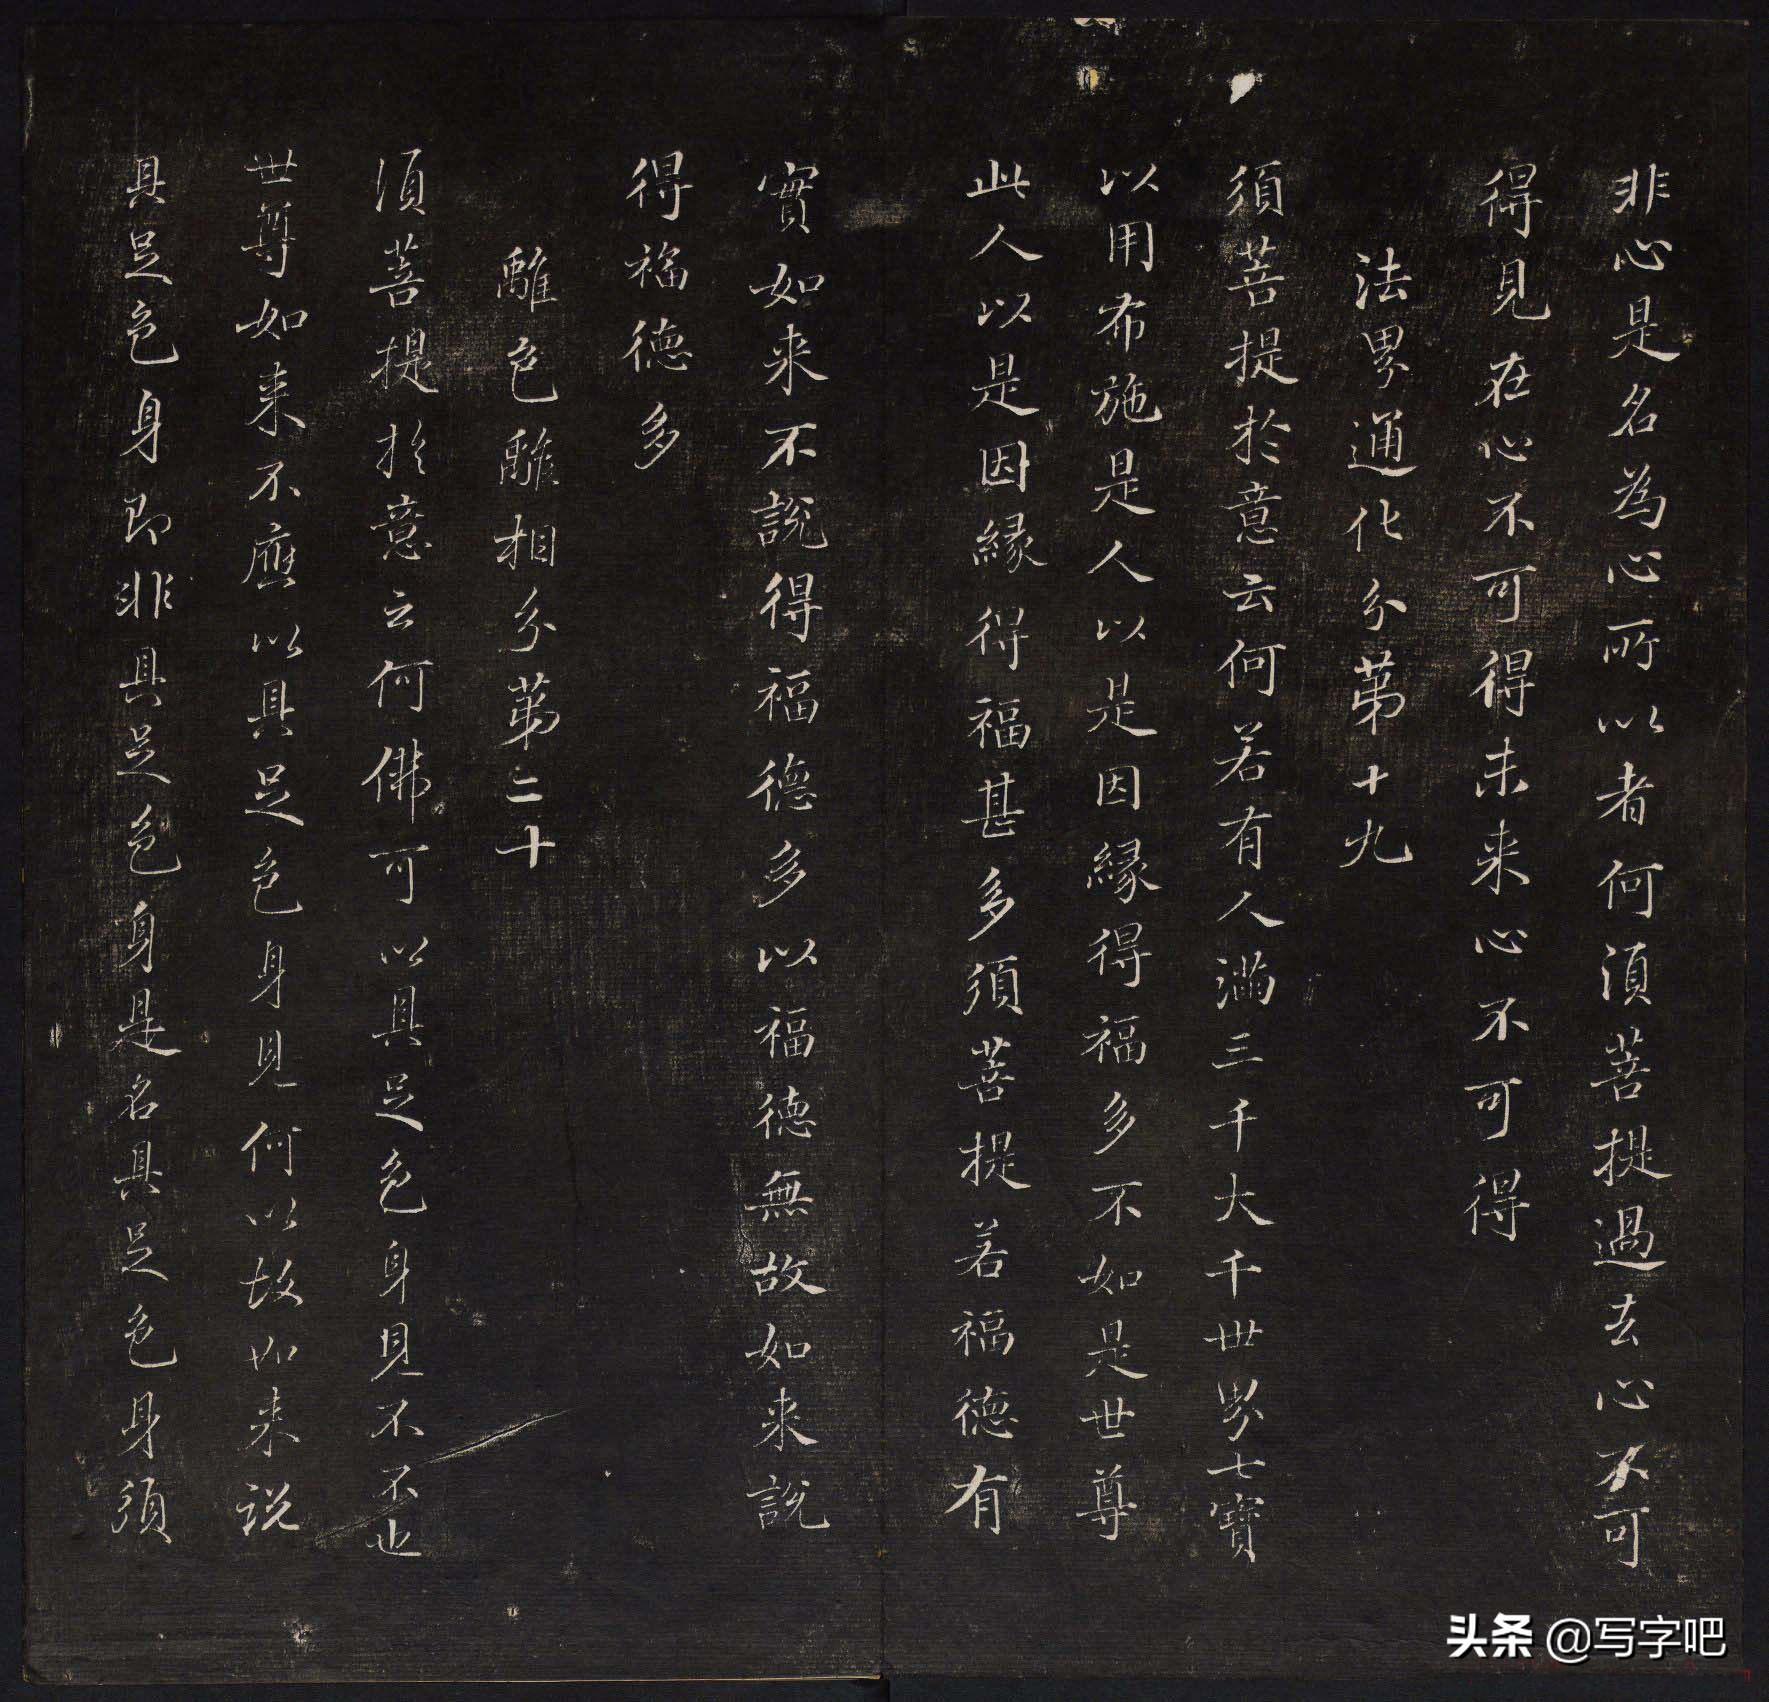 非心是名為心所以者何須菩提過去心不可
得見在心不可得未来心不可得
法界通化分第十九
須菩提於意云何若有人滿三千大千世界七寶
以用布施是人以是因緣得福多不如是世尊
此人以是因緣得福甚多須菩提若福德有
實如来不說得福德多以福德無故如来說
得福德多
離色離相分第二十
須菩提於意云何佛可以具足色身見不不也
世尊如来不應以具足色身見何以故如来说
具足色身即非具足色身是名具足色身須
头条 @写字吧